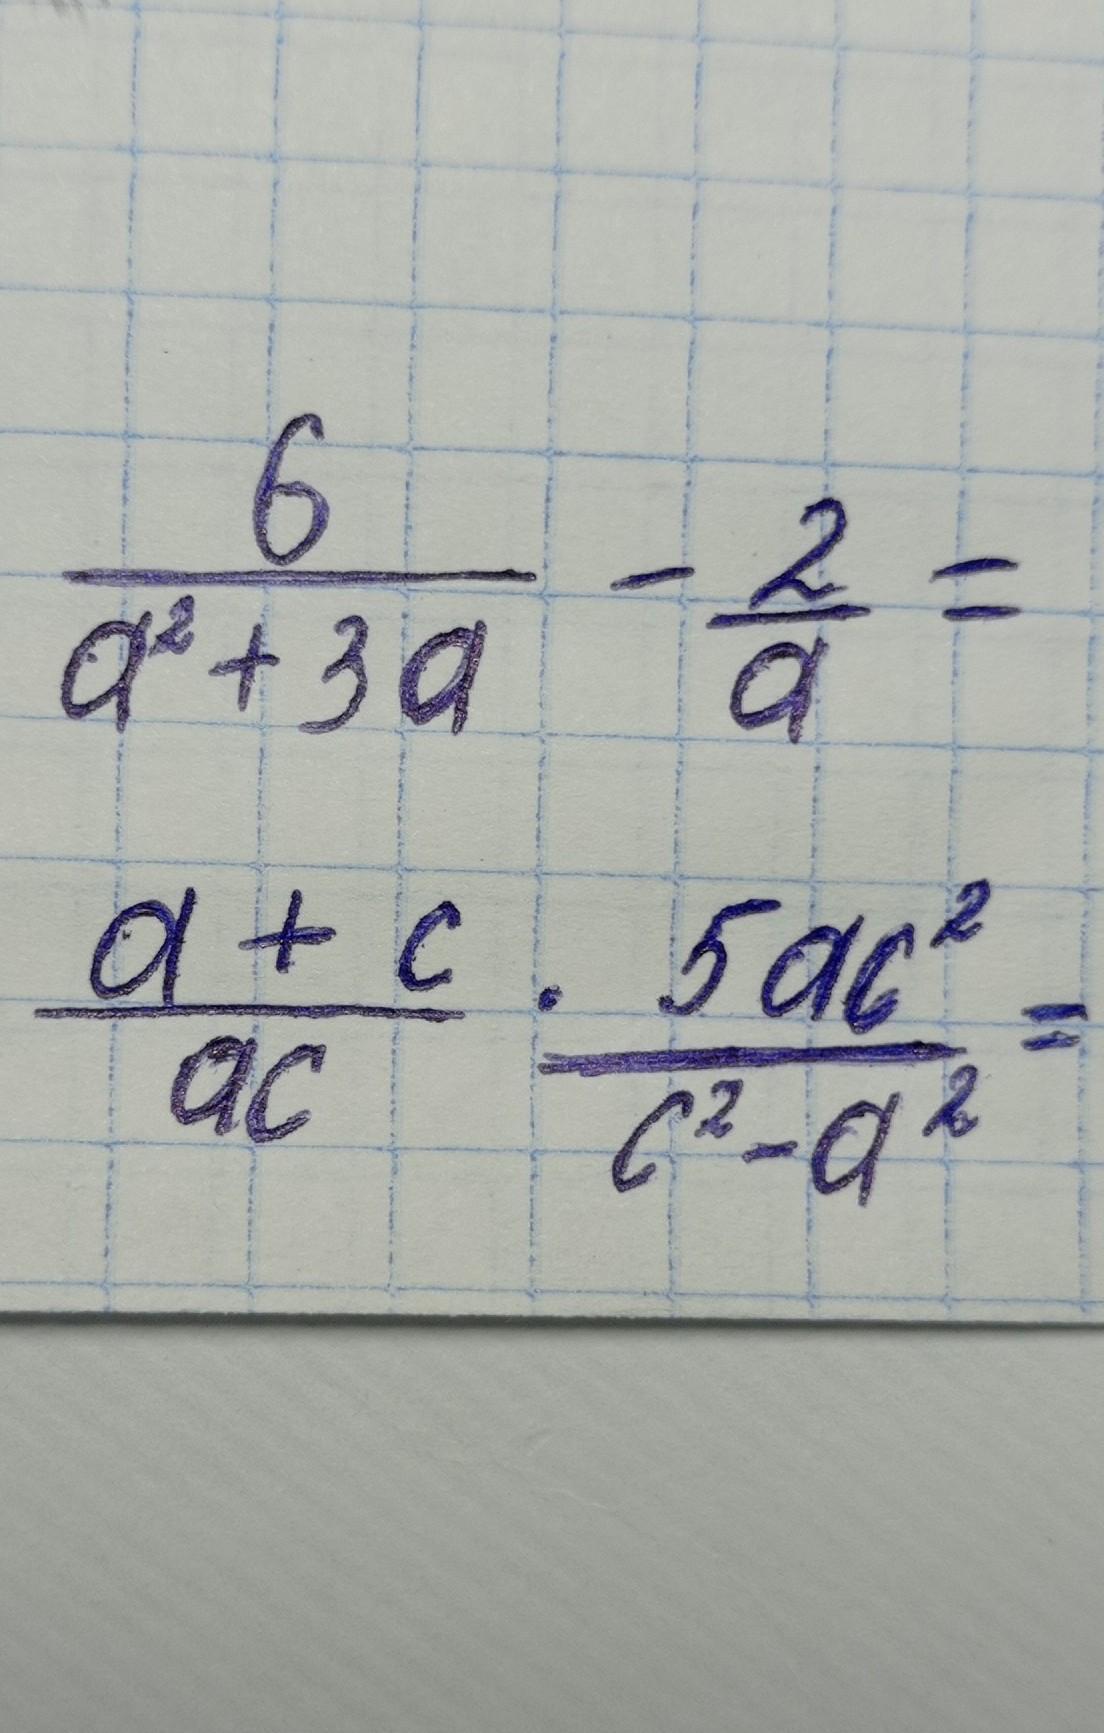 6/(a²+3a) - 2/a =
(a + c)/(ac) · 5ac²/(c²-a²) =